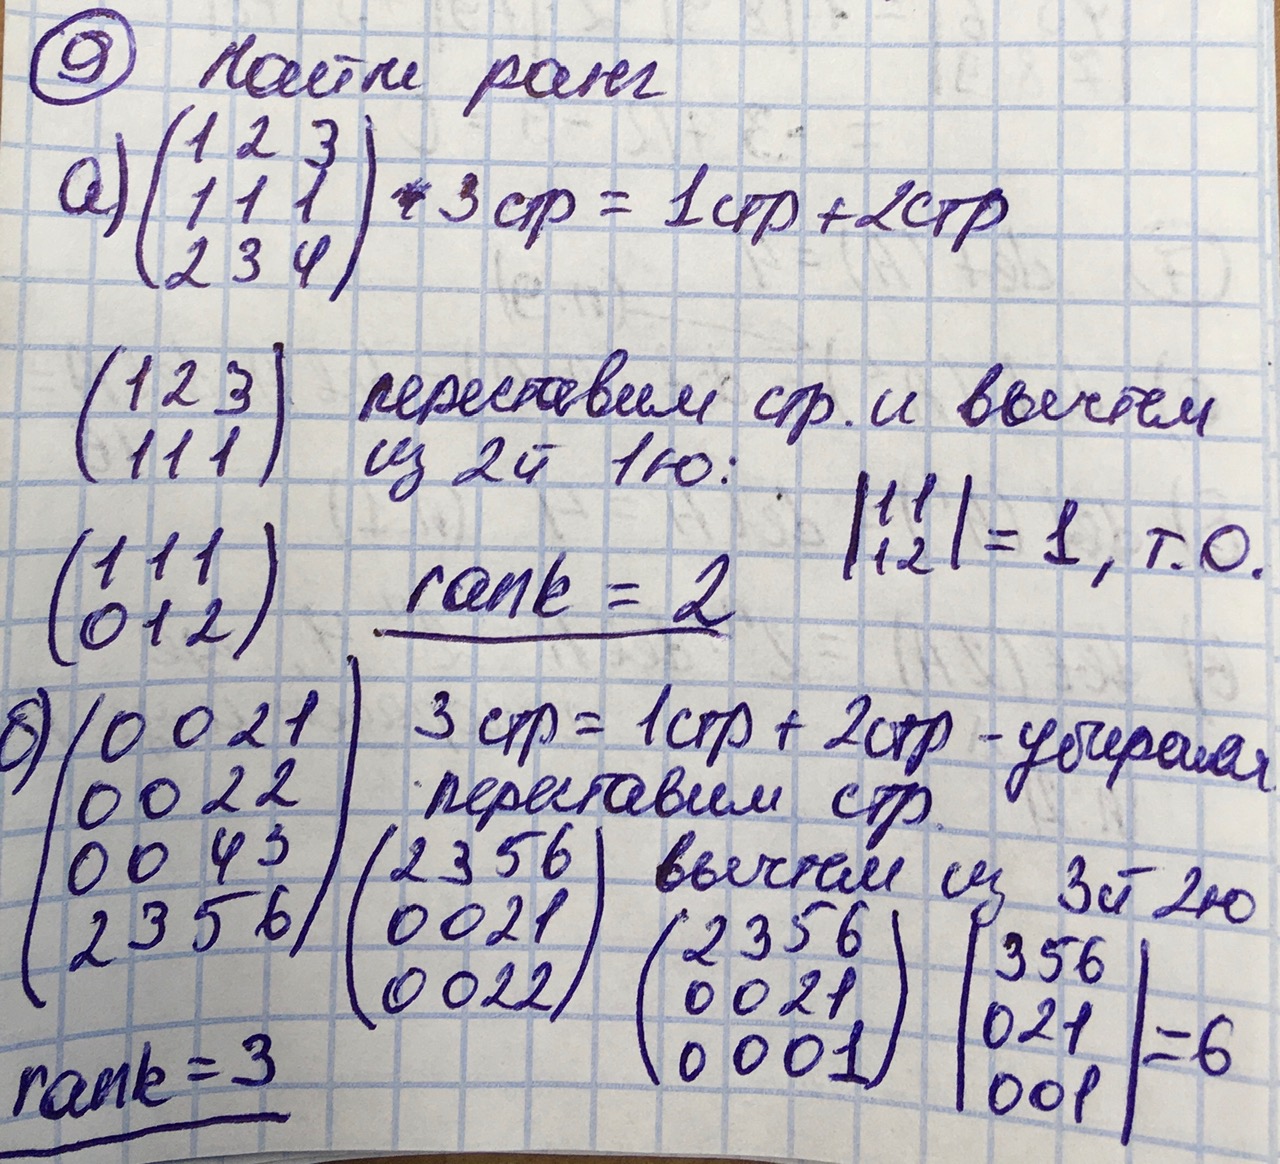 9 Найти ранг
а) (1 2 3
1 1 1
2 3 4) 3 стр = 1стр + 2стр
(1 2 3
1 1 1) переставим стр. и вычтем
из 2й 1ю:
(1 1 1
0 1 2) rank = 2
|1 1
1 2| = 1, т.о.
б) (0 0 2 1
0 0 2 2
0 0 4 3
2 3 5 6)
3 стр = 1стр + 2стр - убираем
переставим стр.
(2 3 5 6
0 0 2 1
0 0 2 2)
вычтем из 3й 2ю
(2 3 5 6
0 0 2 1
0 0 0 1)
|3 5 6
0 2 1
0 0 1| = 6
rank = 3